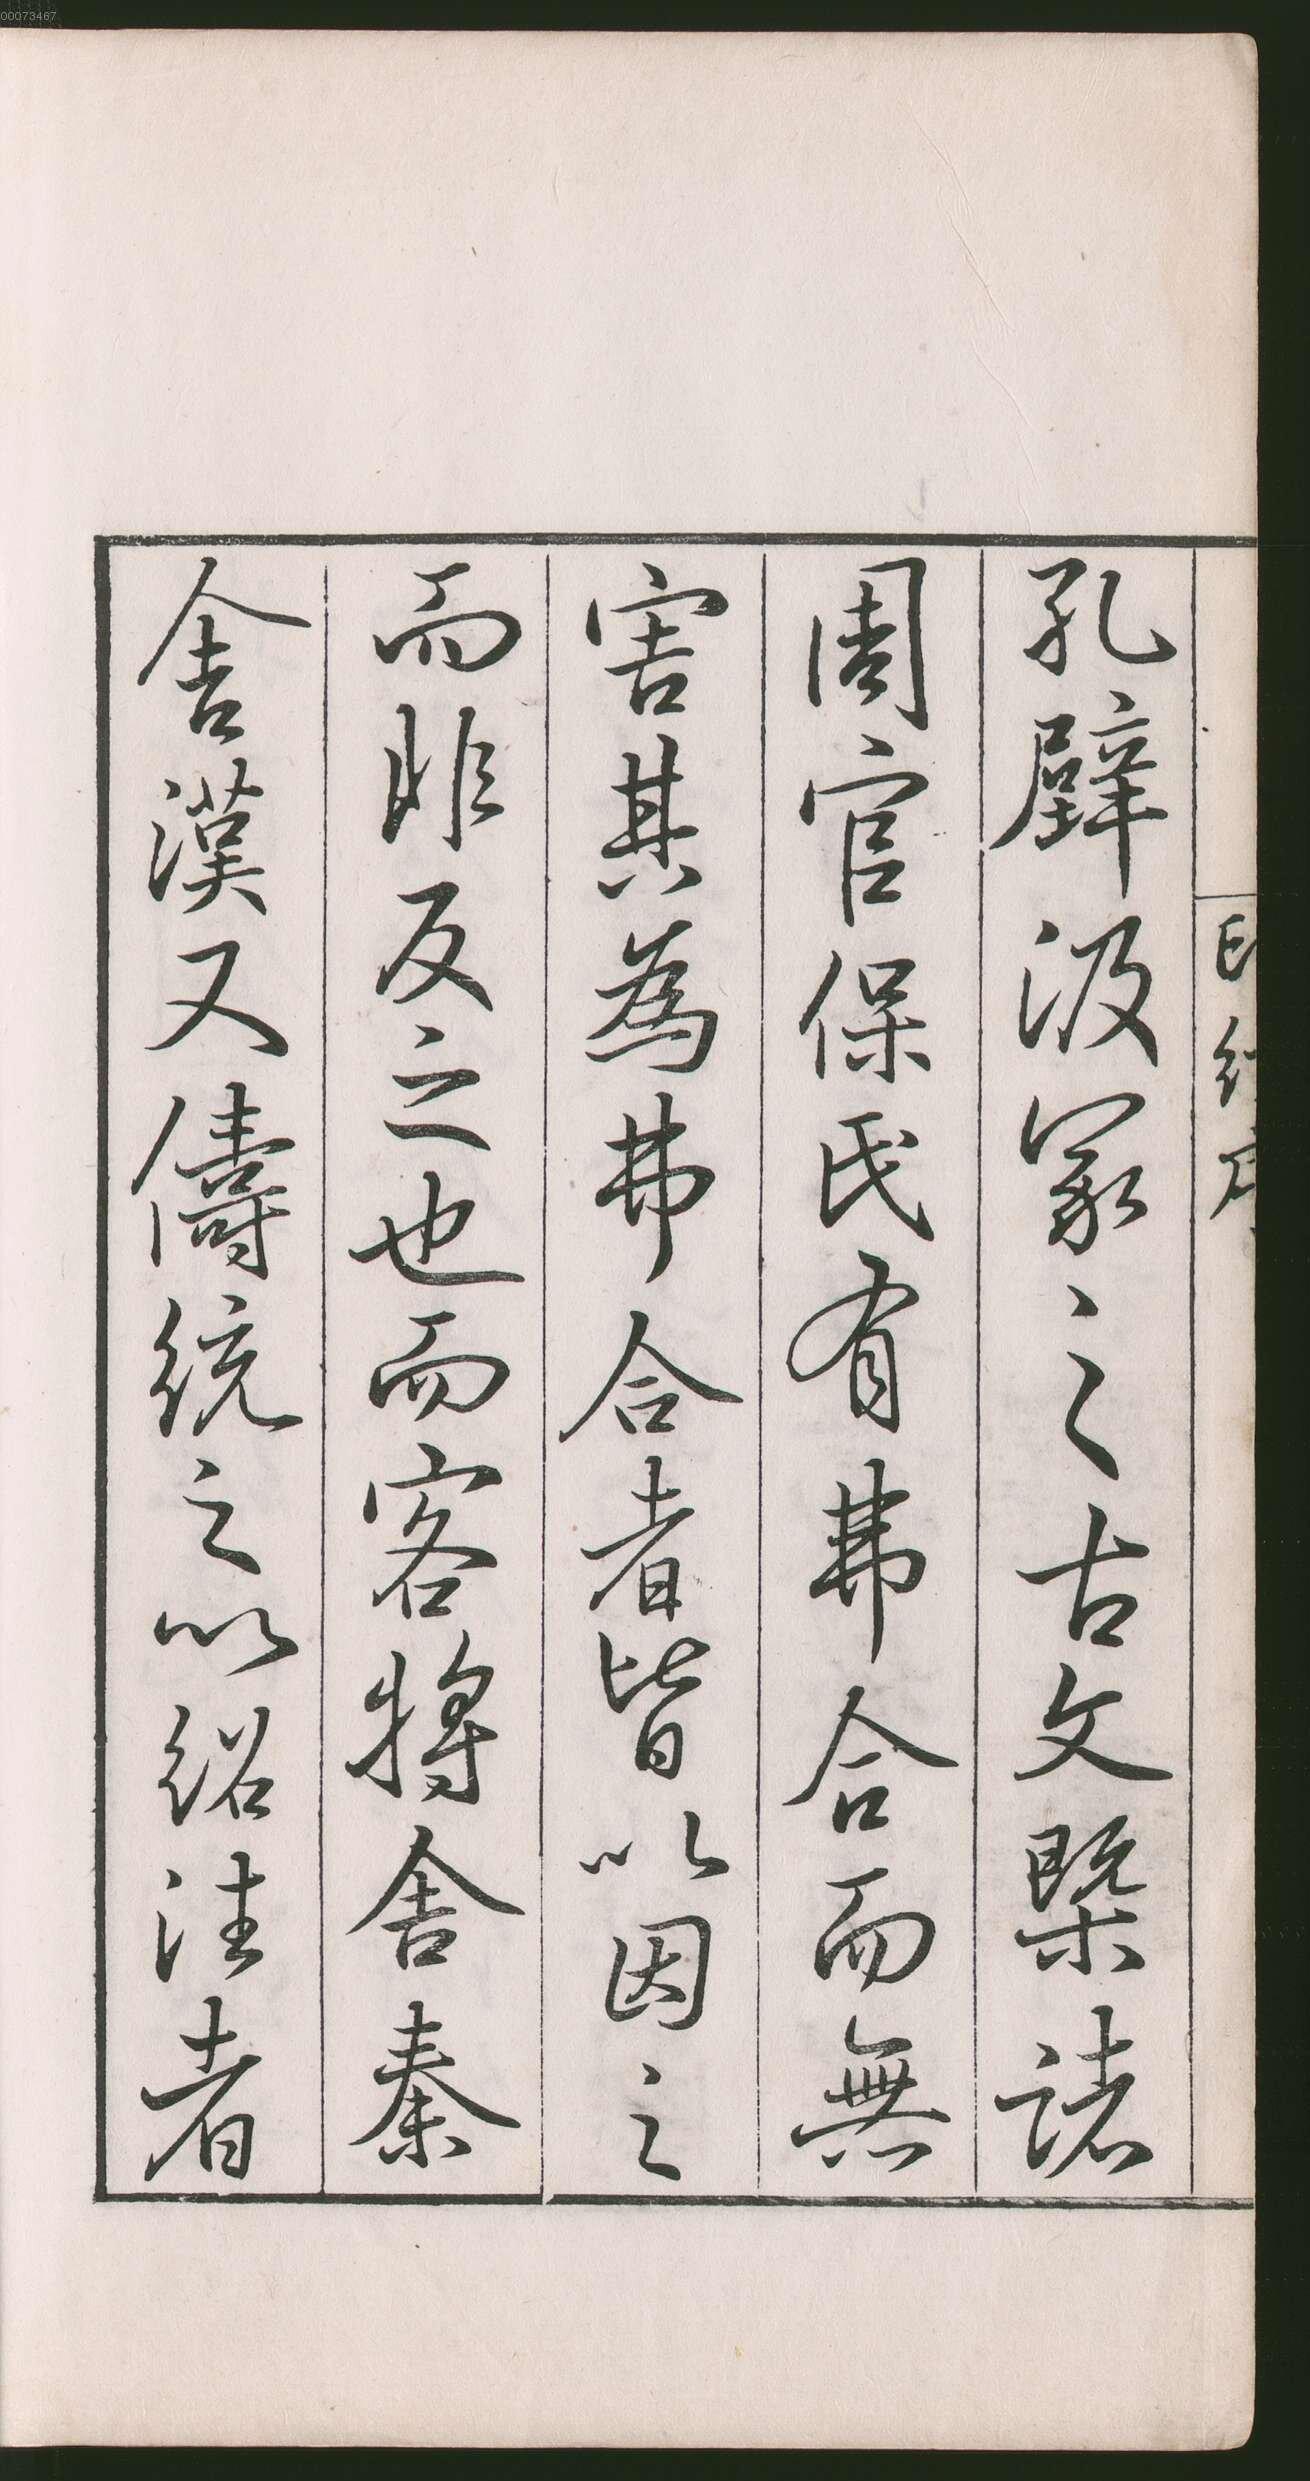 00073467
孔壁汲冢之古文槩諸
周官保氏有弗合而無
害其為弗合者皆以因之
而非反之也而客將舍秦
舍漢又儔統之以紹法者
印經序